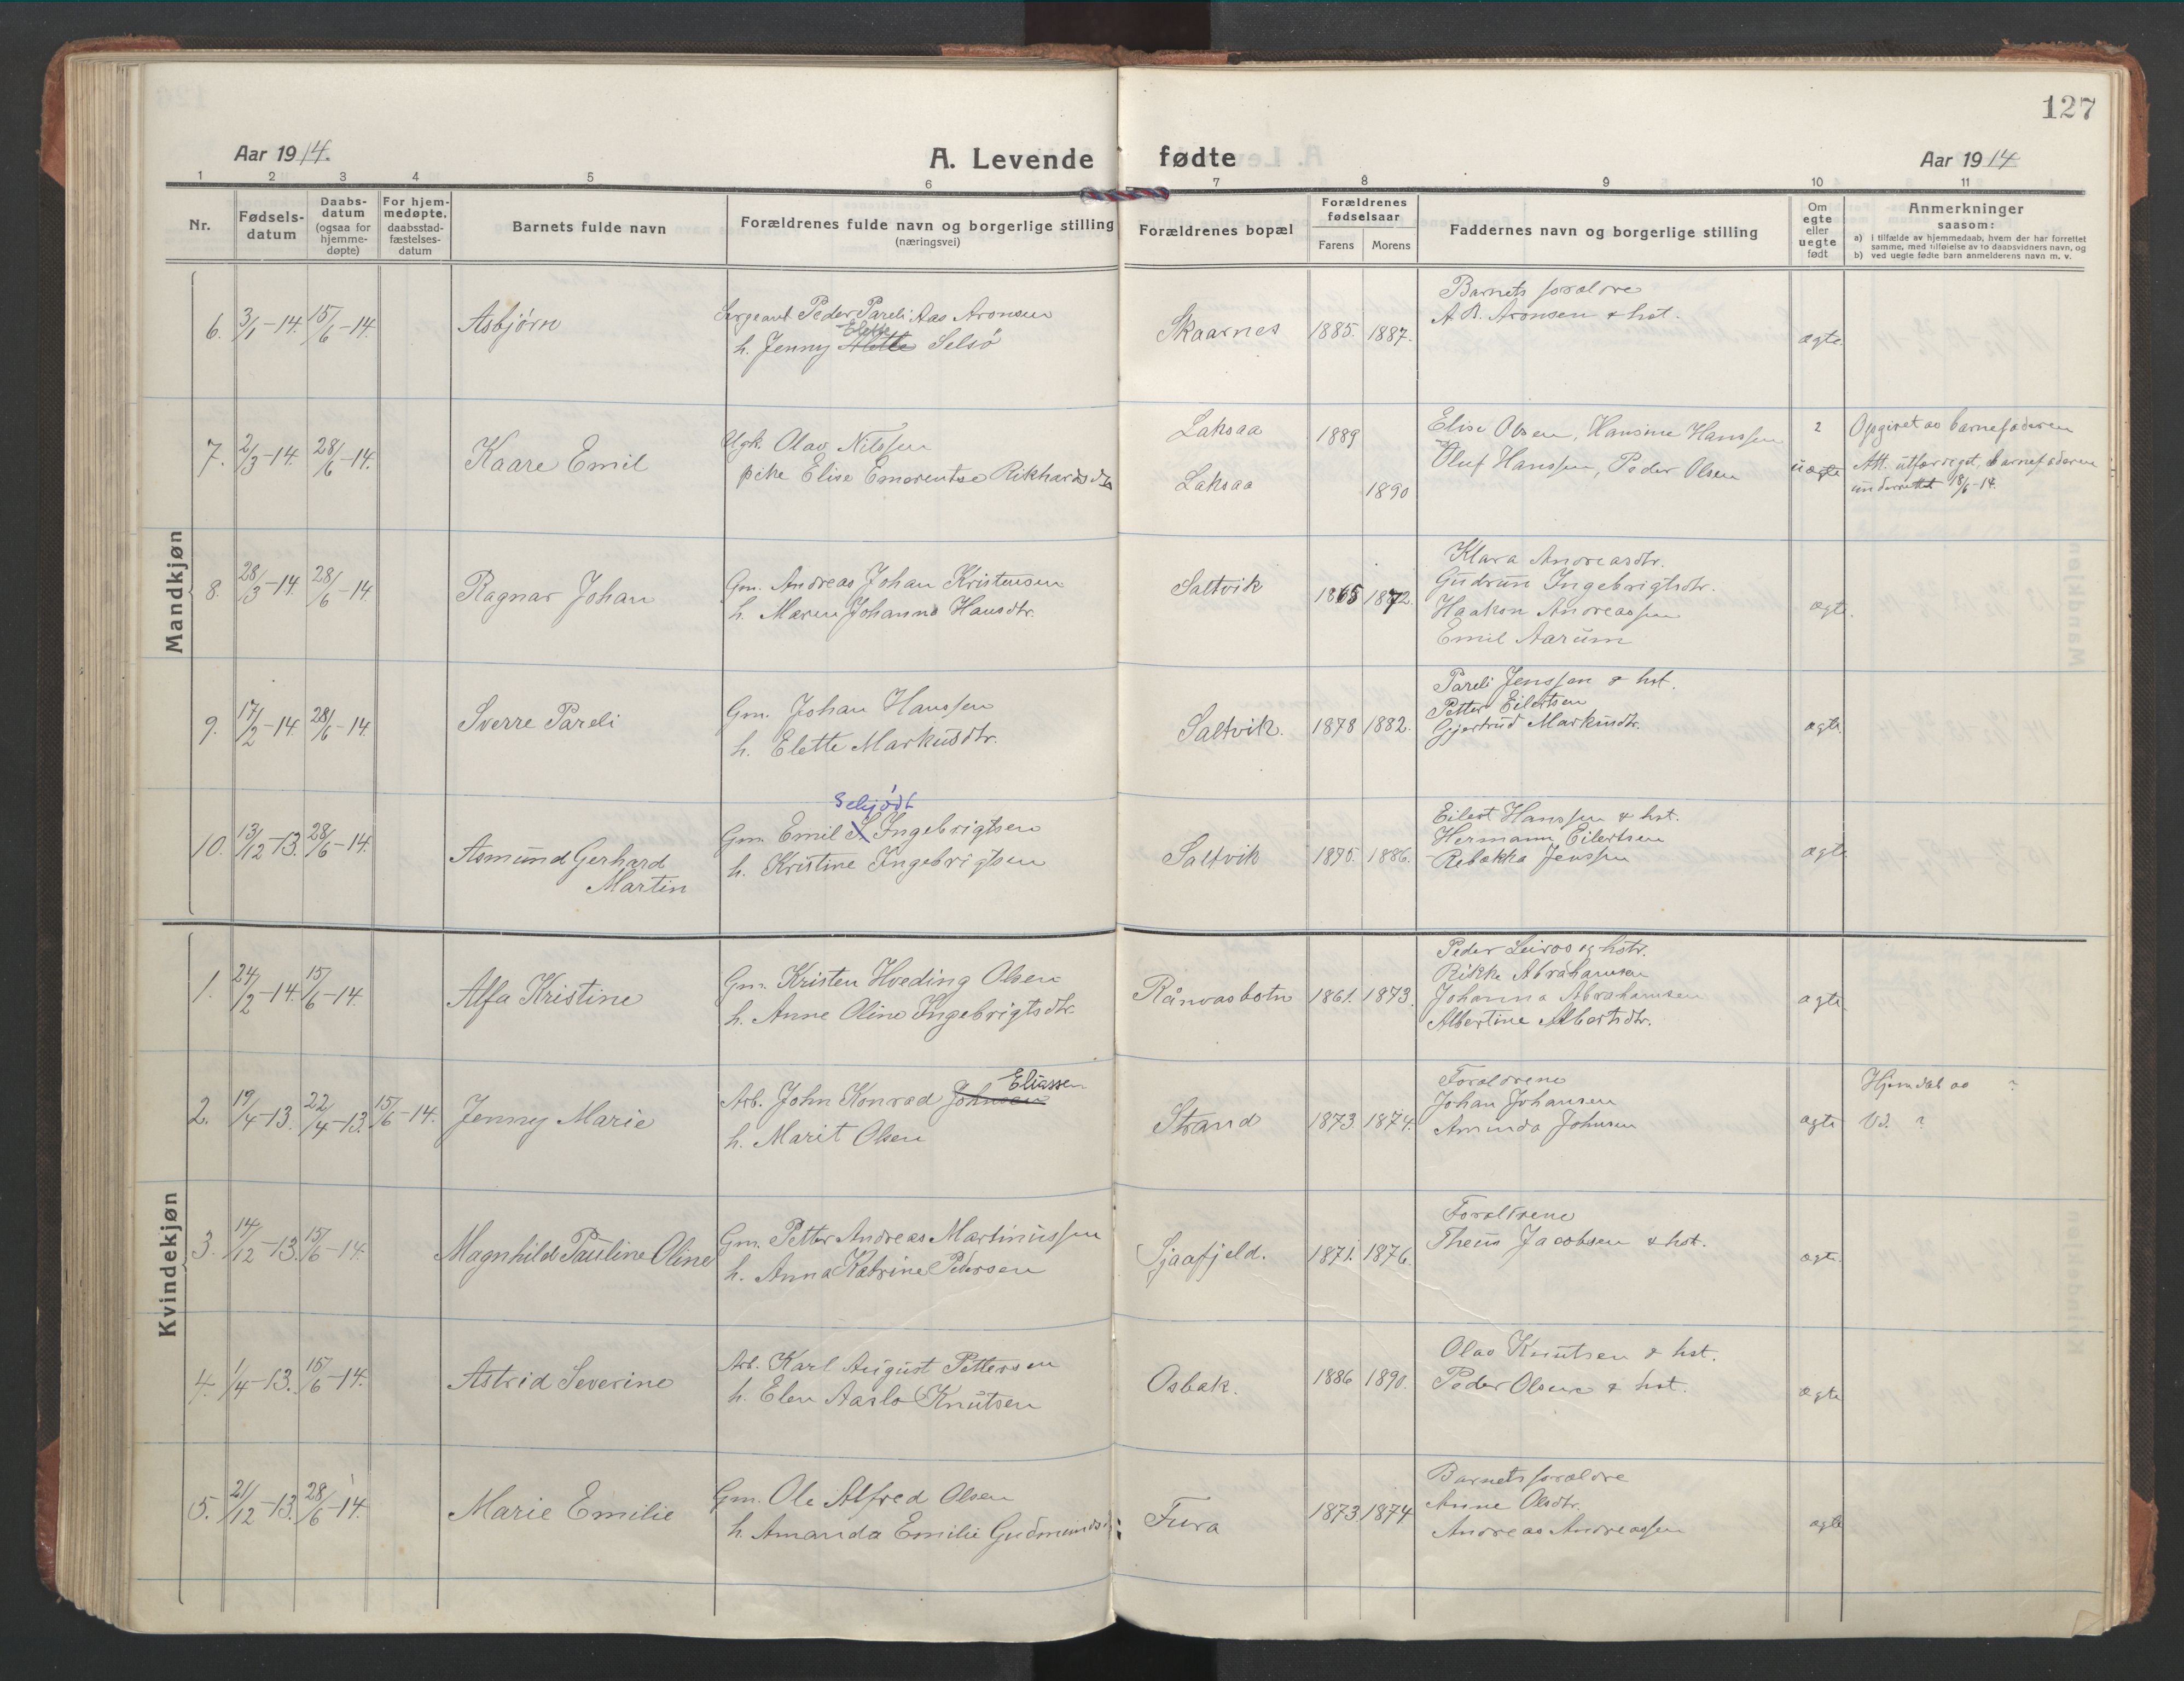 127
Aar 1914.
A. Levende fødte
Aar 1914
1 2 3 4 5 6 7 8 9 10 11
Nr.
Fødsels-
datum
Daabs-
datum
(ogsaa for
hjemme-
døpte)
For hjem-
medøpte,
daabsstad-
fæstelses-
datum
Barnets fulde navn
Forældrenes fulde navn og borgerlige stilling
(næringsvei)
Forældrenes bopæl
Forældrenes
fødselsaar
Farens Morens
Faddernes navn og borgerlige stilling
Om
egte
eller
uegte
født
Anmerkninger
saasom:
a) i tilfælde av hjemmedaab, hvem der har forrettet
samme, med tilføielse av to daabsvidners navn, og
b) ved uegte fødte barn anmelderens navn m. v.
Mandkjøn
6. 3/1-14. 15/6-14. Asbjørn
Sergeant Peder Pareli Aas Aronsen
Elette
h. Jenny Alette Selsø
Skaarnes 1885. 1887.
Barnets forældre
A. B. Aronsen & hst.
ægte.
7. 2/3-14. 28/6-14. Kaare Emil
Ugk. Olav Nilssen
pike Elise Emerentse Rikhardsdtr
Laksaa 1889
Laksaa 1890
Elise Olsen, Hansine Hanssen
Oluf Hanssen, Peder Olsen
2
uægte
Opgivet av barnefaderen
Att. utfærdiget, barnefaderen
underrettet 18/6-14.
8. 28/3-14. 28/6-14. Ragnar Johan
Gm. Andreas Johan Kristensen
h. Maren Johanna Hansdtr.
Saltvik 1865 1872.
Klara Andreasdtr.
Gudrun Ingebrigtsdtr.
Haakon Andreassen
Emil Aarum
ægte.
9. 17/2-14 28/6-14 Sverre Pareli
Gm. Johan Hanssen
h. Elette Markusdtr.
Saltvik. 1878 1882.
Pareli Jenssen & hst.
Petter Eilertsen
Gjertrud Markusdtr.
ægte.
10. 13/12-13. 28/6-14. Asmund Gerhard
Martin
Schjødt
Gm. Emil S Ingebrigtsen
h. Kristine Ingebrigtsen
Saltvik 1875. 1886.
Eilert Hanssen & hst.
Hermann Eilertsen
Rebekka Jenssen
ægte
Kvindekjøn
1. 24/2-14. 15/6-14. Alfa Kristine
Gm. Kristen Hveding Olsen
h. Anne Oline Ingebrigtsdtr.
Rånvasbotn 1861. 1873.
Peder Leiros og hstr.
Rikke Abrahamsen
Johanna Abrahamsen
Albertine Albertsdtr.
ægte
2. 19/4-13. 22/4-13. 15/6-14. Jenny Marie
Eliassen
Arb. John Konrad Johnsen
h. Marit Olsen
Strand 1873. 1874.
Forældrene
Johan Johansen
Aminda Johnsen
ægte
Hjemdøb av ?
Vd. ?
3. 14/12-13. 15/6-14. Magnhild Pauline Oline
Gm. Petter Andreas Martinussen
h. Anna Katrine Pedersen
Sjaafjeld. 1871. 1876.
Forældrene
Theus Jacobsen & hst.
ægte.
4. 1/4-13. 15/6-14. Astrid Severine
Arb. Karl August Pettersen
h. Elen Aaslo Knutsen
Osbak. 1886 1890.
Olav Knutsen & hst.
Peder Olsen & hst.
ægte
5. 21/12-13. 28/6-14. Marie Emilie
Gm. Ole Alfred Olsen
h. Amanda Emilie Gudmundsd
Fura 1873. 1874
Barnets forældre
Anne Olsdtr.
Andreas Andreassen
ægte